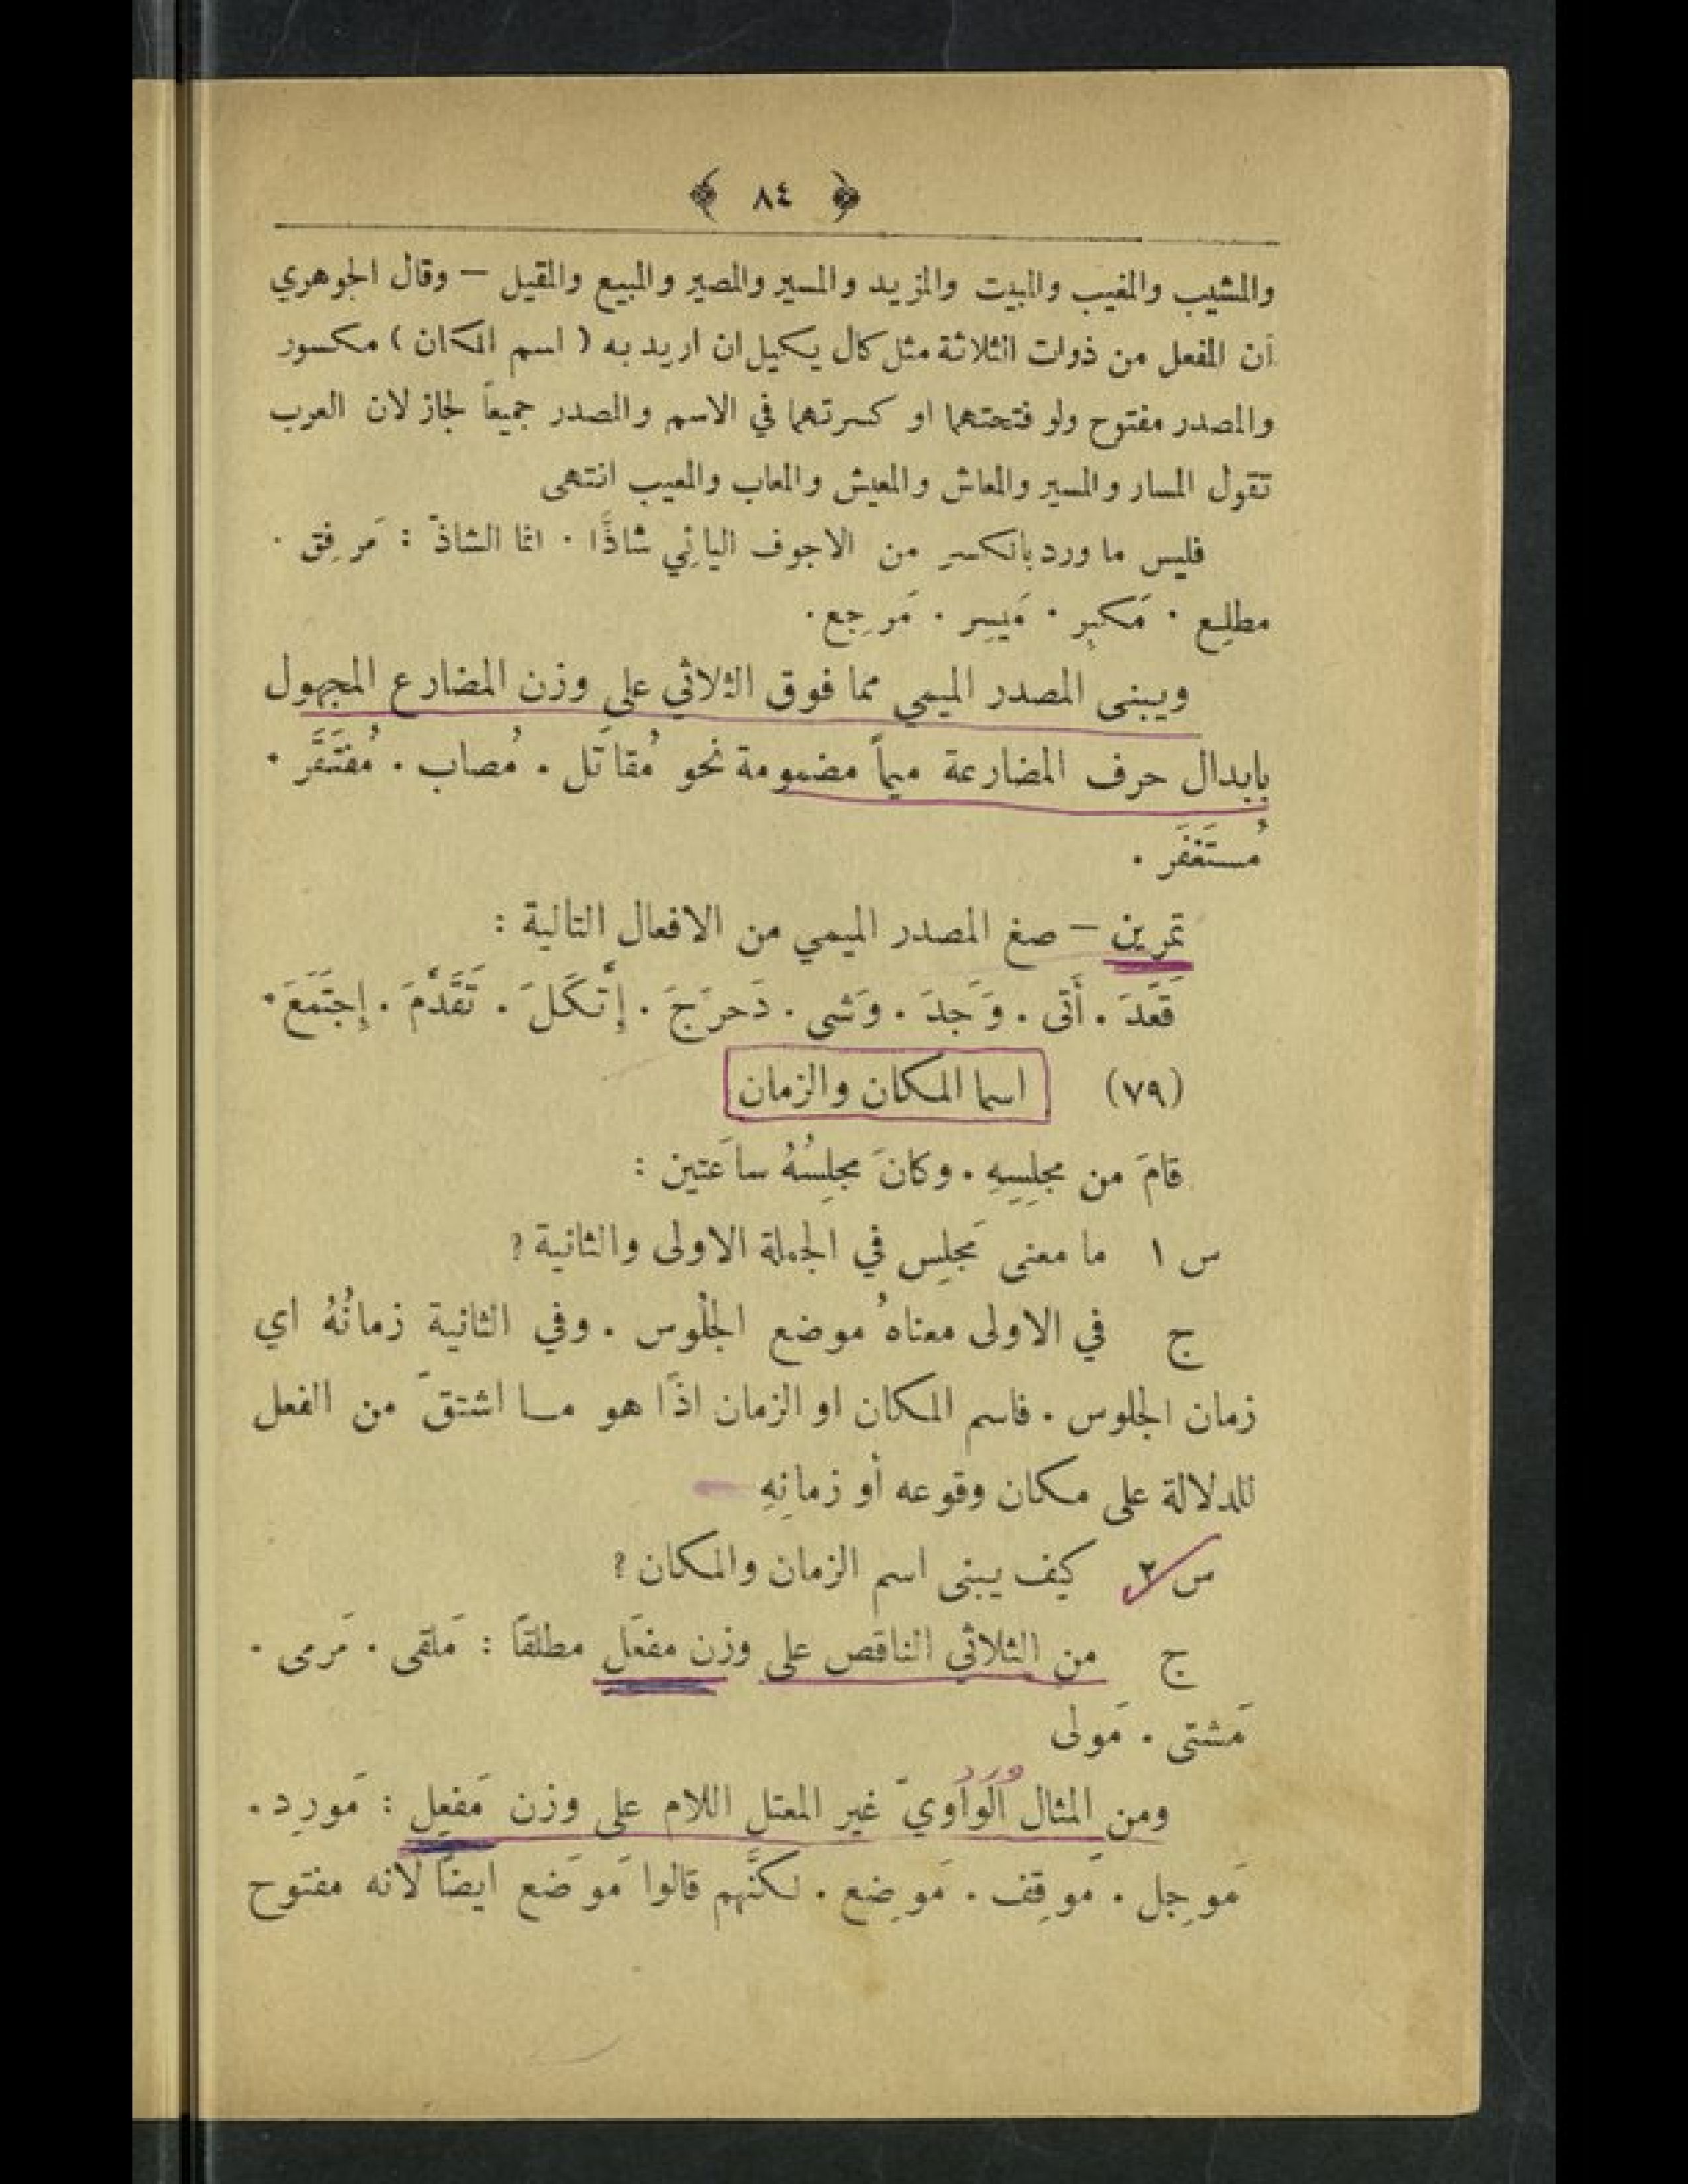 ﴿ ٨٤ ﴾
والمشيب والمغيب والمبيت والمزيد والمسير والمصير والمبيع والمقيل — وقال الجوهري
أن المفعل من ذوات الثلاثة مثل كال يكيل ان اريد به ( اسم المكان ) مكسور
والمصدر مفتوح ولو فتحتهما او كسرتهما في الاسم والمصدر جميعاً لجاز لان العرب
تقول المسار والمسير والمعاش والمعيش والمعاب والمعيب انتهى
فليس ما ورد بالكسر من الاجوف اليائي شاذًّا ٠ انما الشاذّ : مَرفِق ٠
مطلِع ٠ مَكبِر ٠ مَيسِر ٠ مَرجِع ٠
ويبنى المصدر الميمي مما فوق الثلاثي على وزن المضارع المجهول
بابدال حرف المضارعة ميماً مضمومة نحو مُقاتَل ٠ مُصاب ٠ مُفتَقَر ٠
مُستَغفَر ٠
تمرين — صغ المصدر الميمي من الافعال التالية :
قَعَدَ ٠ أَتى ٠ وَجَدَ ٠ وَشى ٠ دَحرَجَ ٠ إِتَّكَلَ ٠ تَقَدَّمَ ٠ إِجتَمَعَ ٠
(٧٩) اسما المكان والزمان
قامَ من مجلِسِهِ ٠ وكانَ مجلِسُهُ ساعَتين :
س ١ ما معنى مَجلِس في الجملة الاولى والثانية ؟
ج في الاولى معناهُ موضع الجلُوس ٠ وفي الثانية زمانُهُ اي
زمان الجلوس ٠ فاسم المكان او الزمان اذًا هو مـا اشتقّ من الفعل
للدلالة على مكان وقوعه أو زمانِهِ
س ٢ كيف يبنى اسم الزمان والمكان ؟
ج من الثلاثي الناقص على وزن مفعَل مطلقاً : مَلقى ٠ مَرمى ٠
مَشتى ٠ مَولى
ورد
ومن المثال الواويّ غير المعتل اللام على وزن مَفعِل : مَورِد ٠
مَوجِل ٠ مَوقِف ٠ مَوضِع ٠ لكنَّهم قالوا مَوضَع ايضاً لانه مفتوح